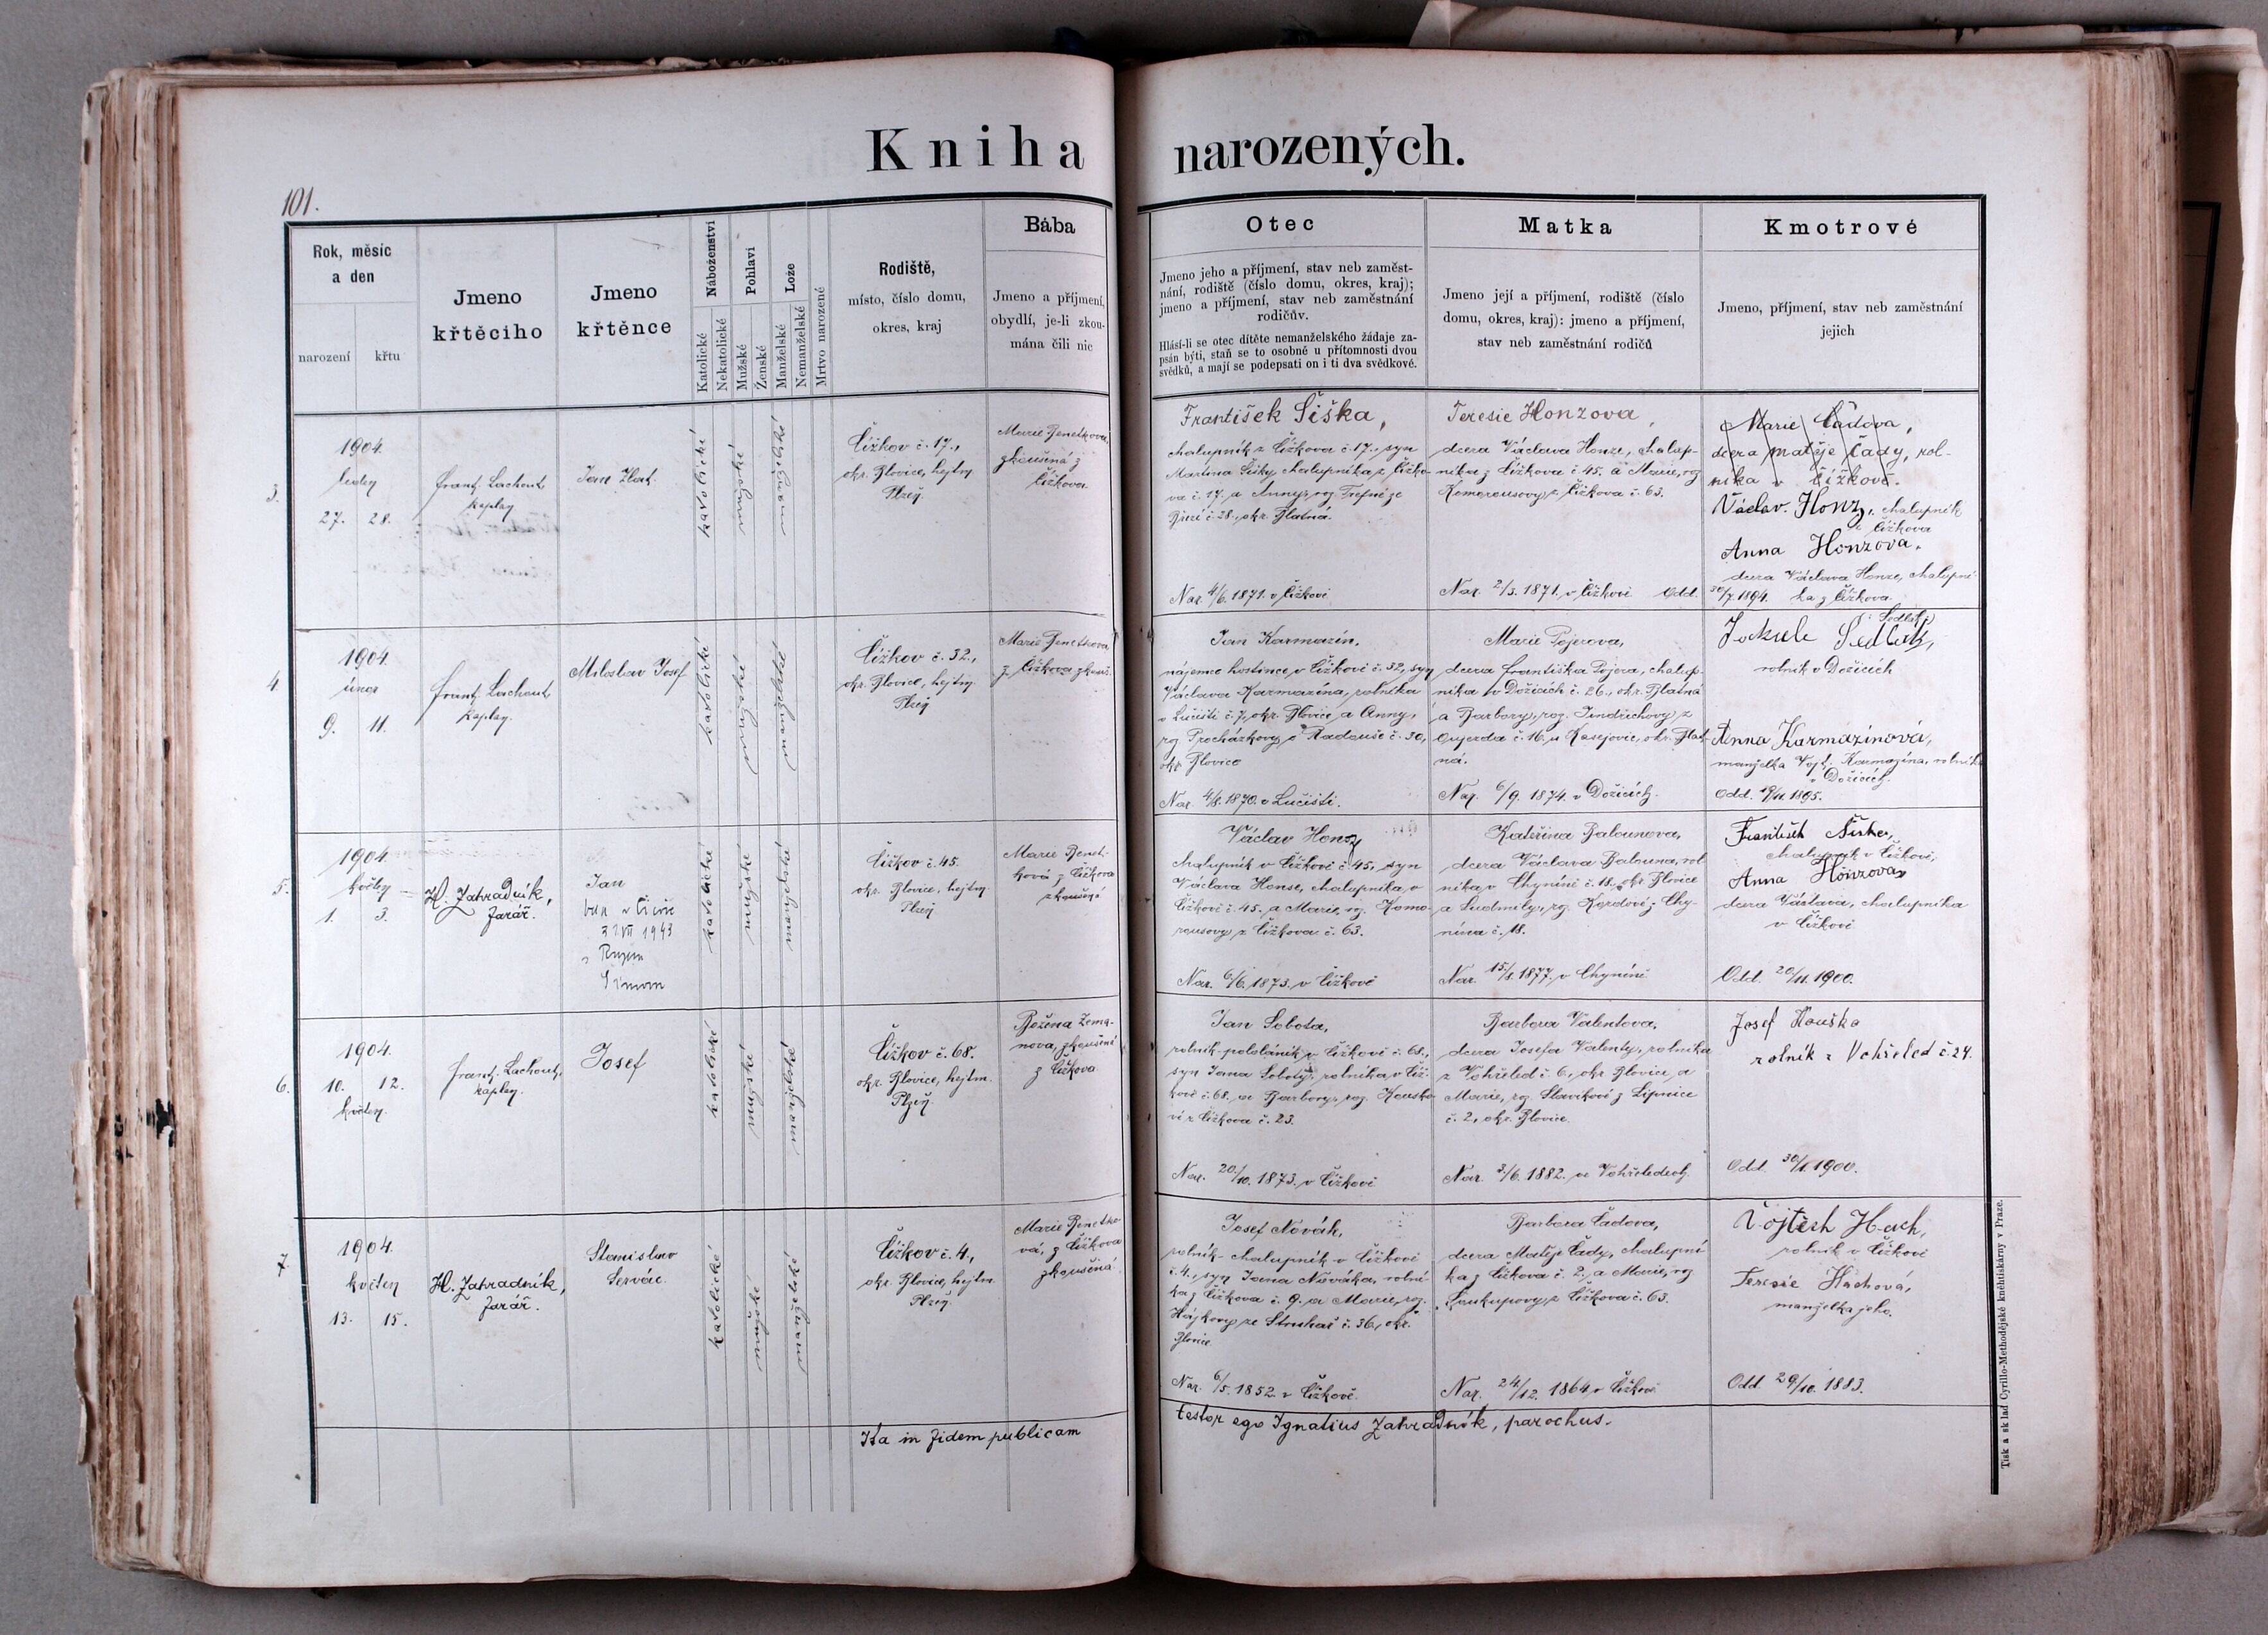 Kniha narozených.
101.
Rok, měsíc
a den
narození
křtu
Jmeno
křtěciho
Jmeno
křtěnce
Náboženství
Katolické
Nekatolické
Pohlaví
Mužské
Ženské
Lože
Manželské
Nemanželské
Mrtvo narozené
Rodiště,
místo, číslo domu,
okres, kraj
Bába
Jmeno a příjmení,
obydlí, je-li zkou-
mána čili nic
Otec
Jmeno jeho a příjmení, stav neb zaměst-
nání, rodiště (číslo domu, okres, kraj);
jmeno a příjmení, stav neb zaměstnání
rodičův.
Hlásí-li se otec dítěte nemanželského žádaje za-
psán býti, staň se to osobně u přítomnosti dvou
svědků, a mají se podepsati on i ti dva svědkové.
Matka
Jmeno její a příjmení, rodiště (číslo
domu, okres, kraj): jmeno a příjmení,
stav neb zaměstnání rodičů
Kmotrové
Jmeno, příjmení, stav neb zaměstnání
jejich
3.
1904.
leden
27. 28.
Frant. Lachout
kaplan
Jan
katolické
mužské
manželské
Čížkov č. 17.,
okr. Blovice, hejtm.
Plzeň.
Marie Benetkova,
zkoušená z
Čížkova.
František Šiška,
chalupník z Čížkova č. 17., syn
Martina Šišky, chalupníka z Čížko-
va č. 17. a Anny, roz.
č. 28., okr. Blatná.
Nar. 4/6. 1871. v Čížkově
Teresie Honzova,
dcera Václava Honze, chalup-
níka z Čížkova č. 45. a Marie, roz.
Komorousovy z Čížkova č. 63.
Nar. 2/3. 1871. v Čížkově Odd. 30/7. 1894.
Marie Čadova,
dcera Matěje Čady, rol-
níka v Čížkově.
Václav Honz, chalupník
z Čížkova
Anna Honzova,
dcera Václava Honze, chalupní-
ka z Čížkova.
4
1904.
únor
9. 11.
Frant. Lachout
kaplan.
Miloslav Josef
katolické
mužské
manželské
Čížkov č. 32.,
okr. Blovice, hejtm.
Plzeň
Marie Benetkova
z Čížkova zkouš.
Jan Karmazín,
nájemce hostince v Čížkově č. 32, syn
Václava Karmazína, rolníka
v Lučišti č. 7, okr. Blovice a Anny,
roz. Procházkovy z Radouše č. 30,
okr. Blovice
Nar. 4/8. 1870. v Lučišti.
Marie Pojerova,
dcera Františka Pojera, chalup-
níka v Dožicích č. 26., okr. Blatná
a Barbory, roz. Jindřichovy z
Oujezda č. 16, u Kasejovic, okr. Blat-
ná.
Nar. 6/9. 1874. v Dožicích.
Sedlák
Sedlák,
rolník v Dožicích
Anna Karmazinová,
manželka Vojt. Karmazína, rolníka
v Dožicích.
Odd. 19/11. 1895.
5.
1904.
květen
1. 3.
H. Zahradník,
farář.
Jan
1943
katolické
mužské
manželské
Čížkov č. 45.
okr. Blovice, hejtm.
Plzeň
Marie Benet-
ková z Čížkova
zkoušená
Václav Honz,
chalupník v Čížkově č. 45, syn
Václava Honse, chalupníka v
Čížkově č. 45. a Marie, roz. Komo-
rousovy z Čížkova č. 63.
Nar. 6/6. 1873. v Čížkově
Kateřina Balounova,
dcera Václava Balouna, rol-
níka v Chyníně č. 18., okr. Blovice
a Ludmily, roz. Kordové z Chy-
nína č. 18.
Nar. 15/8. 1877. v Chyníně
František Šiška,
chalupník v Čížkově,
Anna Honzova,
dcera Václava, chalupníka
v Čížkově
Odd. 20/11. 1900.
6.
1904.
10. 12.
květen.
Frant. Lachout,
kaplan.
Josef
katolické
mužské
manželské
Čížkov č. 68.
okr. Blovice, hejtm.
Plzeň.
Božena Zema-
nova, zkoušená
z Čížkova
Jan Sobota,
rolník-pololáník v Čížkově č. 68.,
syn Jana Soboty, rolníka v Číž-
kově č. 68. a Barbory, roz. Housko-
vé z Čížkova č. 23.
Nar. 20/10. 1873. v Čížkově
Barbora Valentova,
dcera Josefa Valenty, rolníka
z Vohřeled č. 6., okr. Blovice, a
Marie, roz. Slavíkové z Lipnice
č. 2, okr. Blovice.
Nar. 3/6. 1882. ve Vohřeledech.
Josef Houška
rolník z Vohřeled č. 24.
Odd. 1900.
7.
1904.
květen
13. 15.
H. Zahradník,
farář.
Stanislav
Servác.
katolické
mužské
manželské
Čížkov č. 4.,
okr. Blovice, hejtm.
Plzeň.
Marie Benetko-
vá, z Čížkova
zkoušená.
Josef Novák,
rolník-chalupník v Čížkově
č. 4., syn Jana Nováka, rolní-
ka z Čížkova č. 9. a Marie, roz.
Hájkovy ze Struhař č. 36., okr.
Blovice.
Nar. 6/5. 1852. v Čížkově.
Barbora Čadova,
dcera Matěje Čady, chalupní-
ka z Čížkova č. 2., a Marie, roz.
Soukupovy z Čížkova č. 63.
Nar. 24/12. 1864. v Čížkově
Vojtěch Hach,
rolník v Čížkově
Teresie Hachová,
manželka jeho.
Odd. 29/10. 1883.
Ita in fidem publicam testor ego Ignatius Zahradník, parochus.
Tisk a sklad Cyrillo-Methodějské kněhtiskárny v Praze.